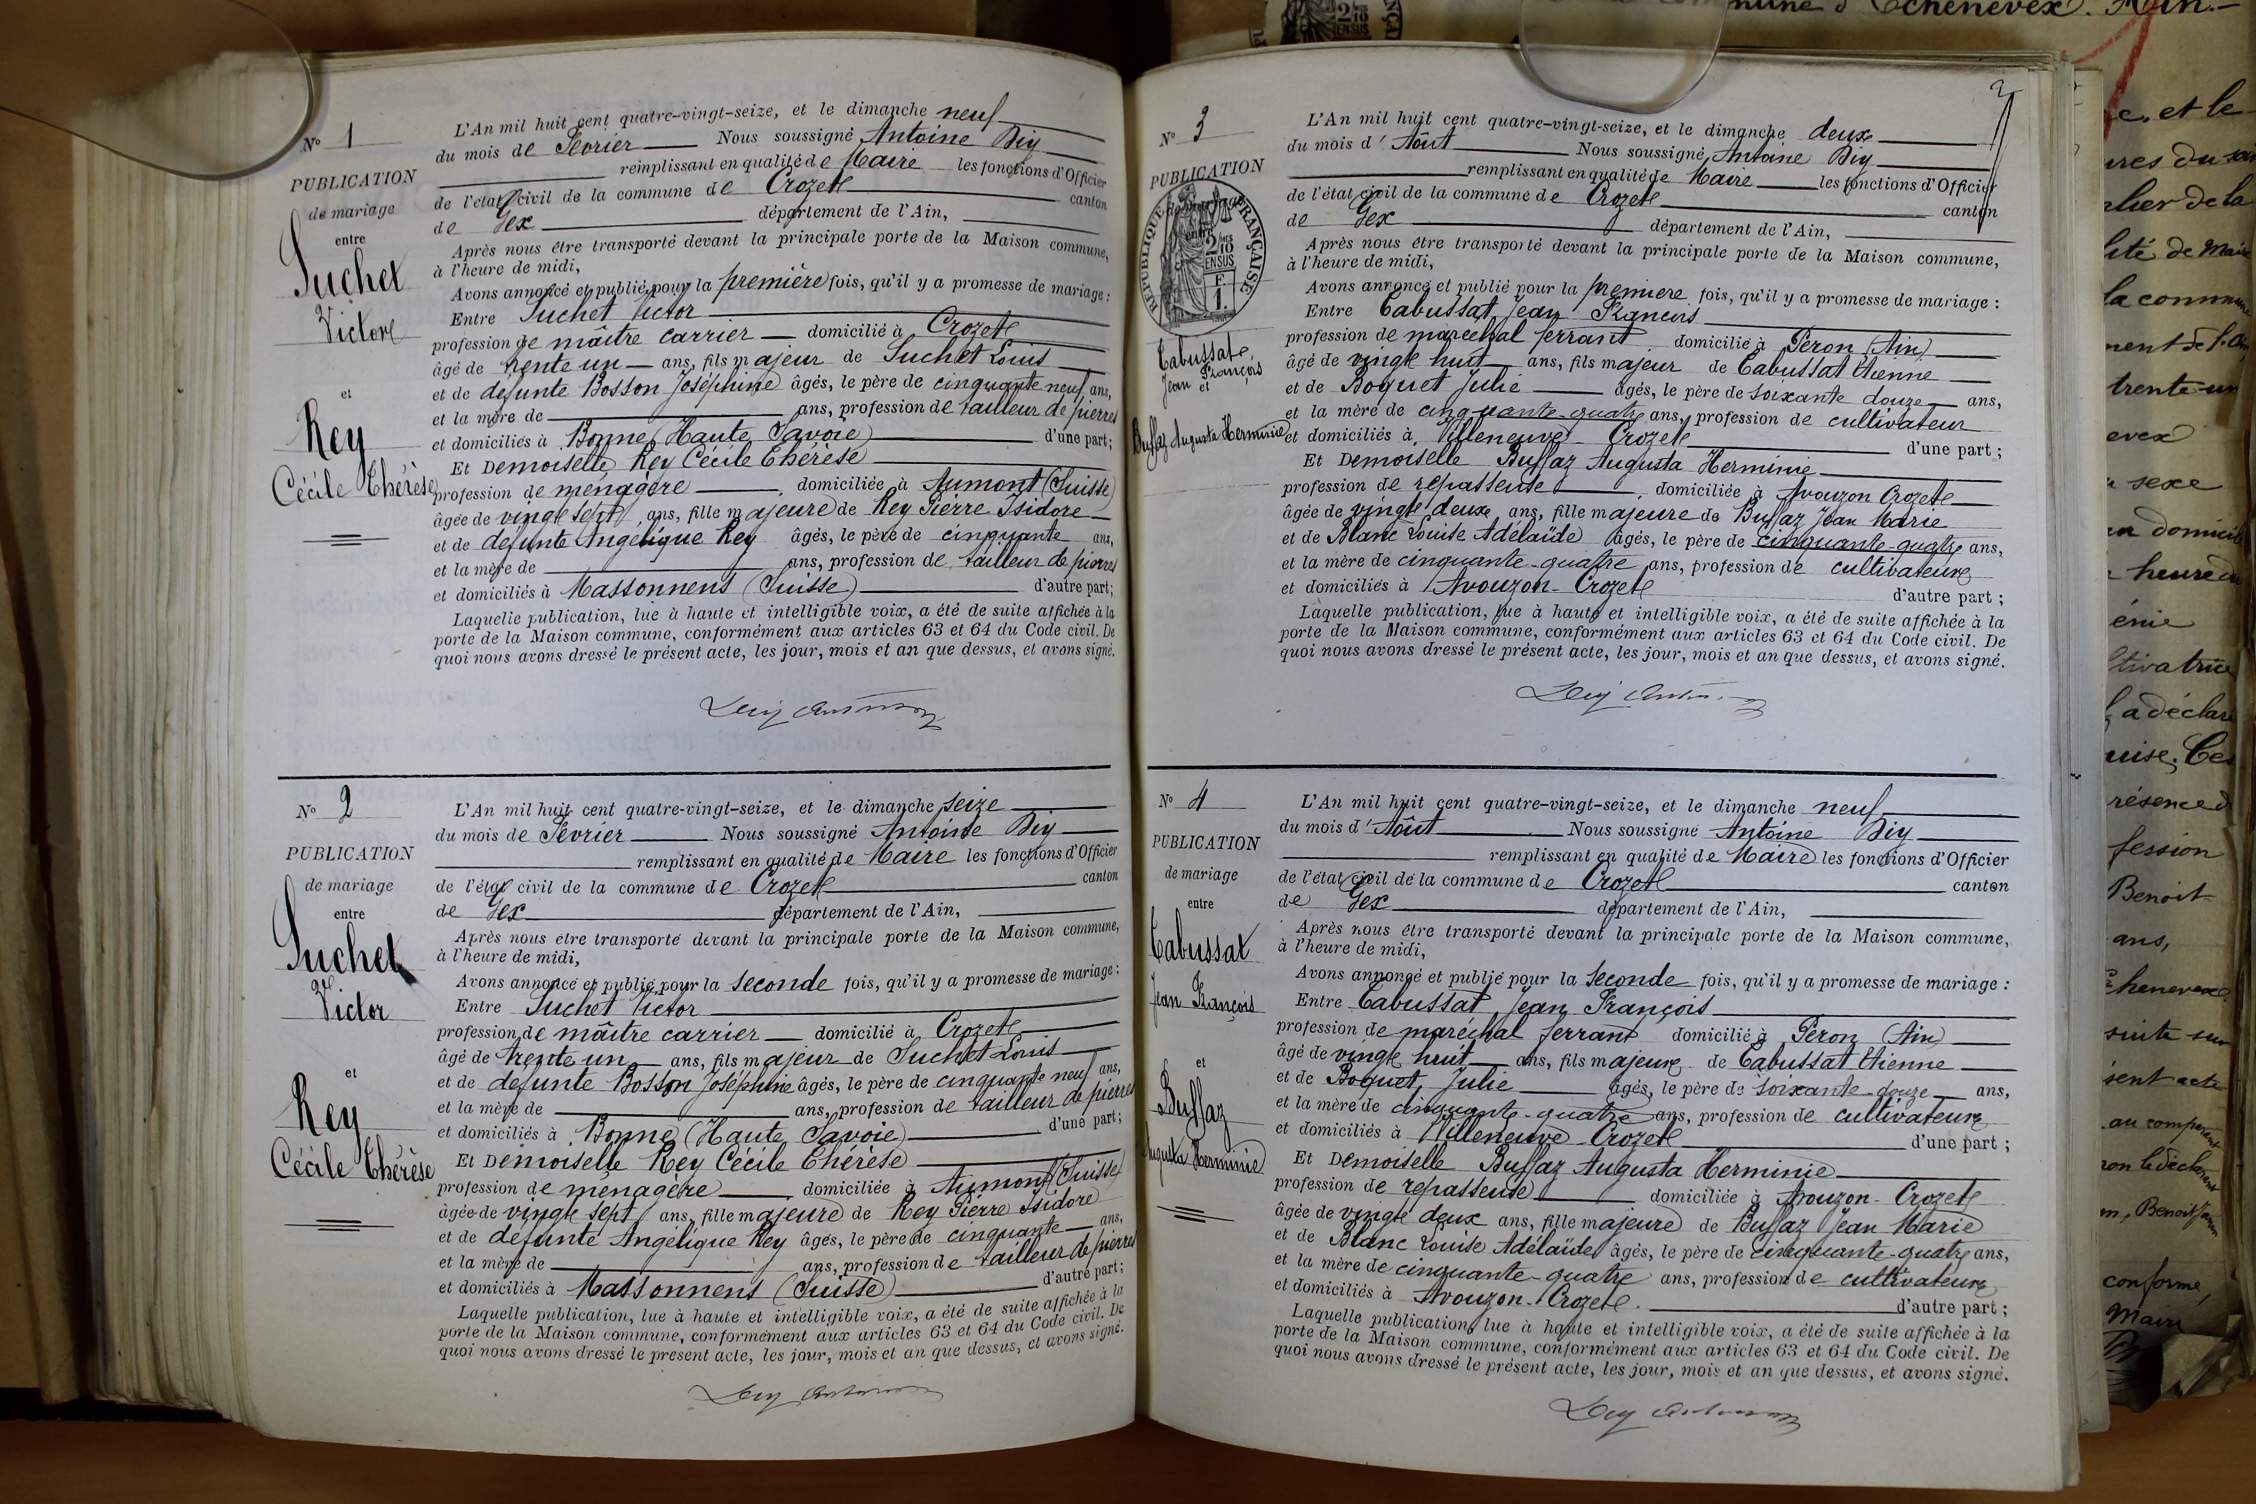 N° 1
PUBLICATION
de mariage
entre
Suchet
Victor
et
Rey
Cécile Thérèse
L'An mil huit cent quatre-vingt-seize, et le dimanche neuf
du mois de Février Nous soussigné Antoine Diy
remplissant en qualité de Maire les fonctions d'Officier
de l'état civil de la commune de Crozet canton
de Gex département de l'Ain,
Après nous être transporté devant la principale porte de la Maison commune,
à l'heure de midi,
Avons annoncé et publié pour la première fois, qu'il y a promesse de mariage :
Entre Suchet Victor
profession de maître carrier domicilié à Crozet
âgé de trente un ans, fils majeur de Suchet Louis
et de défunte Bosson Joséphine âgés, le père de cinquante neuf ans,
et la mère de ans, profession de tailleur de pierres
et domiciliés à Bonne (Haute Savoie) d'une part ;
Et Demoiselle Rey Cécile Thérèse
profession de ménagère, domiciliée à Aumont (Suisse)
âgée de vingt sept ans, fille majeure de Rey Pierre Isidore
et de défunte Angélique Rey âgés, le père de cinquante ans,
et la mère de ans, profession de tailleur de pierres
et domiciliés à Massonnens (Suisse) d'autre part ;
Laquelle publication, lue à haute et intelligible voix, a été de suite affichée à la
porte de la Maison commune, conformément aux articles 63 et 64 du Code civil. De
quoi nous avons dressé le présent acte, les jour, mois et an que dessus, et avons signé.
Diy Antoine
N° 2
PUBLICATION
de mariage
entre
Suchet
Victor
et
Rey
Cécile Thérèse
L'An mil huit cent quatre-vingt-seize, et le dimanche seize
du mois de Février Nous soussigné Antoine Diy
remplissant en qualité de Maire les fonctions d'Officier
de l'état civil de la commune de Crozet canton
de Gex département de l'Ain,
Après nous être transporté devant la principale porte de la Maison commune,
à l'heure de midi,
Avons annoncé et publié pour la seconde fois, qu'il y a promesse de mariage :
Entre Suchet Victor
profession de maître carrier domicilié à Crozet
âgé de trente un ans, fils majeur de Suchet Louis
et de défunte Bosson Joséphine âgés, le père de cinquante neuf ans,
et la mère de ans, profession de tailleur de pierres
et domiciliés à Bonne (Haute Savoie) d'une part ;
Et Demoiselle Rey Cécile Thérèse
profession de ménagère, domiciliée à Aumont (Suisse)
âgée de vingt sept ans, fille majeure de Rey Pierre Isidore
et de défunte Angélique Rey âgés, le père de cinquante ans,
et la mère de ans, profession de tailleur de pierres
et domiciliés à Massonnens (Suisse) d'autre part ;
Laquelle publication, lue à haute et intelligible voix, a été de suite affichée à la
porte de la Maison commune, conformément aux articles 63 et 64 du Code civil. De
quoi nous avons dressé le présent acte, les jour, mois et an que dessus, et avons signé.
Diy Antoine
2
N° 3
PUBLICATION
de mariage
entre
RÉPUBLIQUE FRANÇAISE
2/10
EN SUS
F
1.
Cabussat
Jean François
et
Buffaz Augusta Herminie
L'An mil huit cent quatre-vingt-seize, et le dimanche deux
du mois d'Août Nous soussigné Antoine Diy
remplissant en qualité de Maire les fonctions d'Officier
de l'état civil de la commune de Crozet canton
de Gex département de l'Ain,
Après nous être transporté devant la principale porte de la Maison commune,
à l'heure de midi,
Avons annoncé et publié pour la première fois, qu'il y a promesse de mariage :
Entre Cabussat, Jean François
profession de maréchal ferrant domicilié à Péron (Ain)
âgé de vingt huit ans, fils majeur de Cabussat Etienne
et de Boquet Julie âgés, le père de soixante douze ans,
et la mère de cinquante-quatre ans, profession de cultivateur
et domiciliés à Villeneuve-Crozet d'une part ;
Et Demoiselle Buffaz Augusta Herminie
profession de repasseuse, domiciliée à Avouzon Crozet
âgée de vingt deux ans, fille majeure de Buffaz Jean Marie
et de Blanc Louise Adélaïde âgés, le père de cinquante-quatre ans,
et la mère de cinquante-quatre ans, profession de cultivateurs
et domiciliés à Avouzon-Crozet d'autre part ;
Laquelle publication, lue à haute et intelligible voix, a été de suite affichée à la
porte de la Maison commune, conformément aux articles 63 et 64 du Code civil. De
quoi nous avons dressé le présent acte, les jour, mois et an que dessus, et avons signé.
Diy Antoine
N° 4
PUBLICATION
de mariage
entre
Cabussat
Jean François
et
Buffaz
Augusta Herminie
L'An mil huit cent quatre-vingt-seize, et le dimanche neuf
du mois d'Août Nous soussigné Antoine Diy
remplissant en qualité de Maire les fonctions d'Officier
de l'état civil de la commune de Crozet canton
de Gex département de l'Ain,
Après nous être transporté devant la principale porte de la Maison commune,
à l'heure de midi,
Avons annoncé et publié pour la seconde fois, qu'il y a promesse de mariage :
Entre Cabussat, Jean François
profession de maréchal ferrant domicilié à Péron (Ain)
âgé de vingt huit ans, fils majeur de Cabussat Etienne
et de Boquet, Julie âgés, le père de soixante-douze ans,
et la mère de cinquante-quatre ans, profession de cultivateurs
et domiciliés à Villeneuve-Crozet d'une part ;
Et Demoiselle Buffaz Augusta Herminie
profession de repasseuse domiciliée à Avouzon-Crozet
âgée de vingt deux ans, fille majeure de Buffaz Jean Marie
et de Blanc Louise Adélaïde âgés, le père de cinquante-quatre ans,
et la mère de cinquante-quatre ans, profession de cultivateurs
et domiciliés à Avouzon-Crozet. d'autre part ;
Laquelle publication, lue à haute et intelligible voix, a été de suite affichée à la
porte de la Maison commune, conformément aux articles 63 et 64 du Code civil. De
quoi nous avons dressé le présent acte, les jour, mois et an que dessus, et avons signé.
Diy Antoine
d'Echenevex. Ain.
et le
de la
de Maire
la commune
trente-un
sexe
domicile
heure du
a déclaré
Benoit
ans,
suite sur
conforme,
Maire